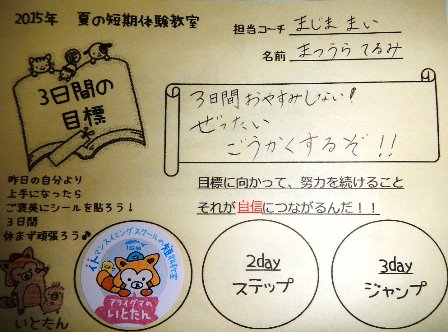 2015年　夏の短期体験教室
担当コーチ　まじま まい
名前　まつうら てるみ
3日間の
目標
3日間おやすみしない!
ぜったい
ごうかくするぞ!!
昨日の自分より
上手になったら
ご褒美にシールを貼ろう↓
3日間
休まず頑張ろう♪
目標に向かって、努力を続けること
それが自信につながるんだ！！
いとたん
イトマンスイミングスクール
アライグマの
いとたん
2day
ステップ
3day
ジャンプ